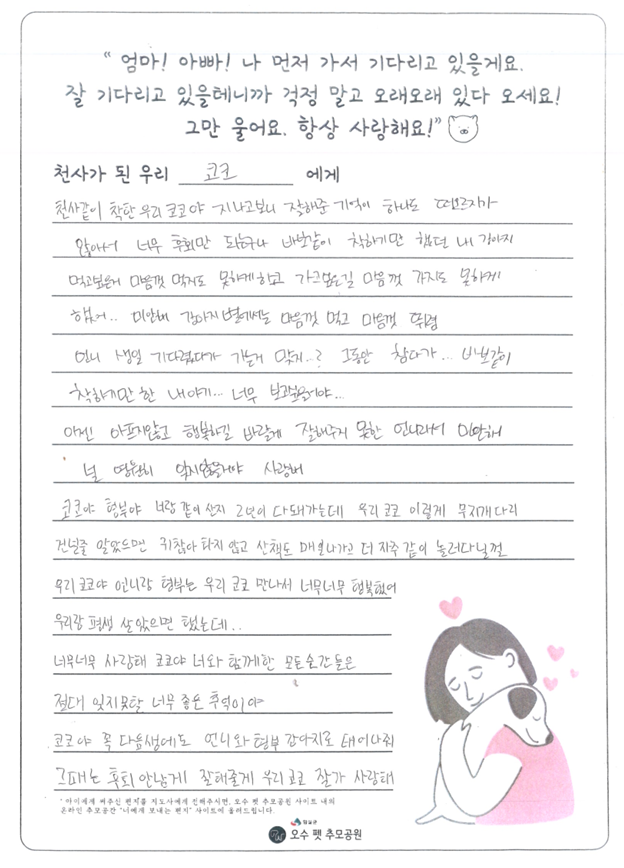 “ 엄마! 아빠! 나 먼저 가서 기다리고 있을게요.
잘 기다리고 있을테니까 걱정 말고 오래오래 있다 오세요!
그만 울어요. 항상 사랑해요!”
천사가 된 우리 코코 에게
천사같이 착한 우리 코코야 지나고보니 잘해준 기억이 하나도 떠오르지가
않아서 너무 후회만 되는구나 바보같이 착하기만 했던 내 강아지
먹고싶은거 마음껏 먹지도 못하게 하고 가고싶은길 마음껏 가지도 못하게
했어.. 미안해 강아지별에서는 마음껏 먹고 마음껏 뛰렴
언니 생일 기다렸다가 가는거 맞지..? 그동안 참다가... 바보같이
착하기만 한 내 아기... 너무 보고싶을거야...
아젠 아프지않고 행복하길 바랄게 잘해주지 못한 언니라서 미안해
널 영원히 잊지않을거야 사랑해
코코야 형부야 너랑 같이 산지 2년이 다돼가는데 우리 코코 이렇게 무지개다리
건널줄 알았으면 귀찮아 하지 않고 산책도 매일나가고 더 자주 같이 놀러다닐껄
우리 코코야 언니랑 형부는 우리 코코 만나서 너무너무 행복했어
우리랑 평생 살았으면 했는데..
너무너무 사랑해 코코야 너와 함께한 모든순간들은
절대 잊지못할 너무 좋은 추억이야
코코야 꼭 다음생에도 언니와 형부 강아지로 태어나줘
그때는 후회 안남게 잘해줄게 우리 코코 잘가 사랑해
* 아이에게 써주신 편지를 지도사에게 전해주시면, 오수 펫 추모공원 사이트 내의
온라인 추모공간 "너에게 보내는 편지" 사이트에 올려드립니다.
오수 펫 추모공원